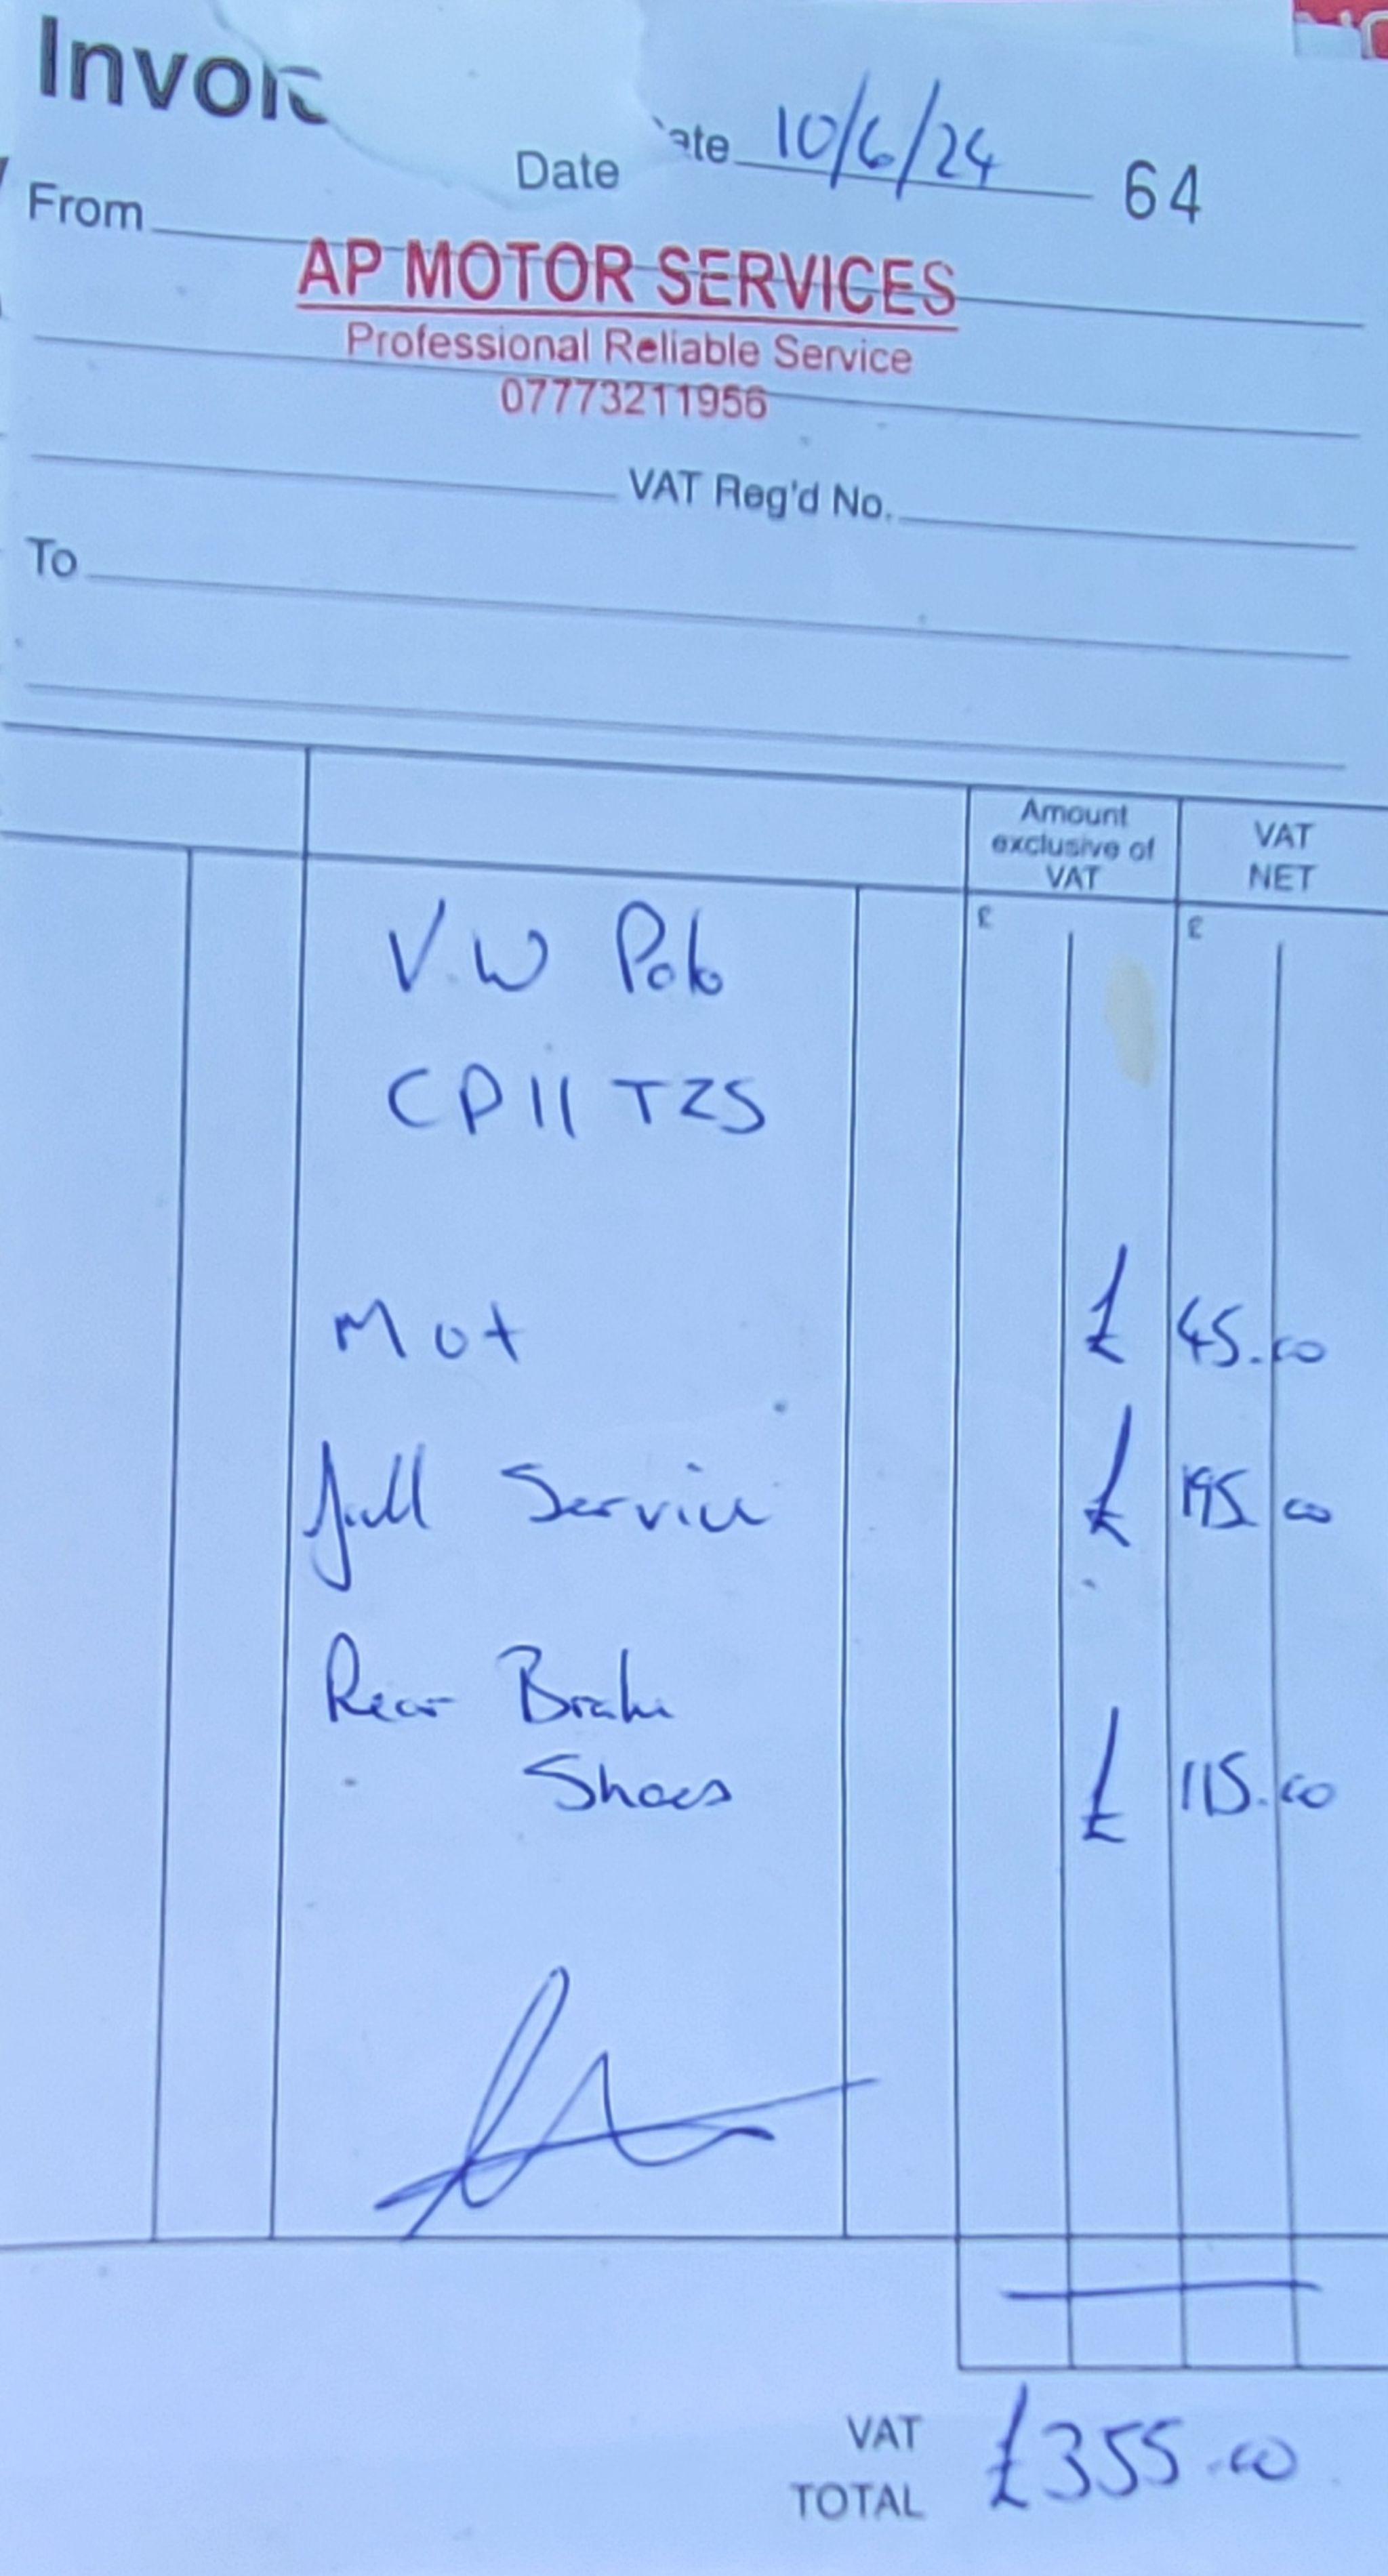 Invoic
Date ate 10/6/24 64
From
AP MOTOR SERVICES
Professional Reliable Service
07773211956
VAT Reg'd No.
To
Amount exclusive of VAT VAT NET
£ £
V.W Polo
CP11 TZS
Mot £ 45.00
full Service £ 195.00
Rear Brake
Shoes £ 115.00
VAT TOTAL £355.00